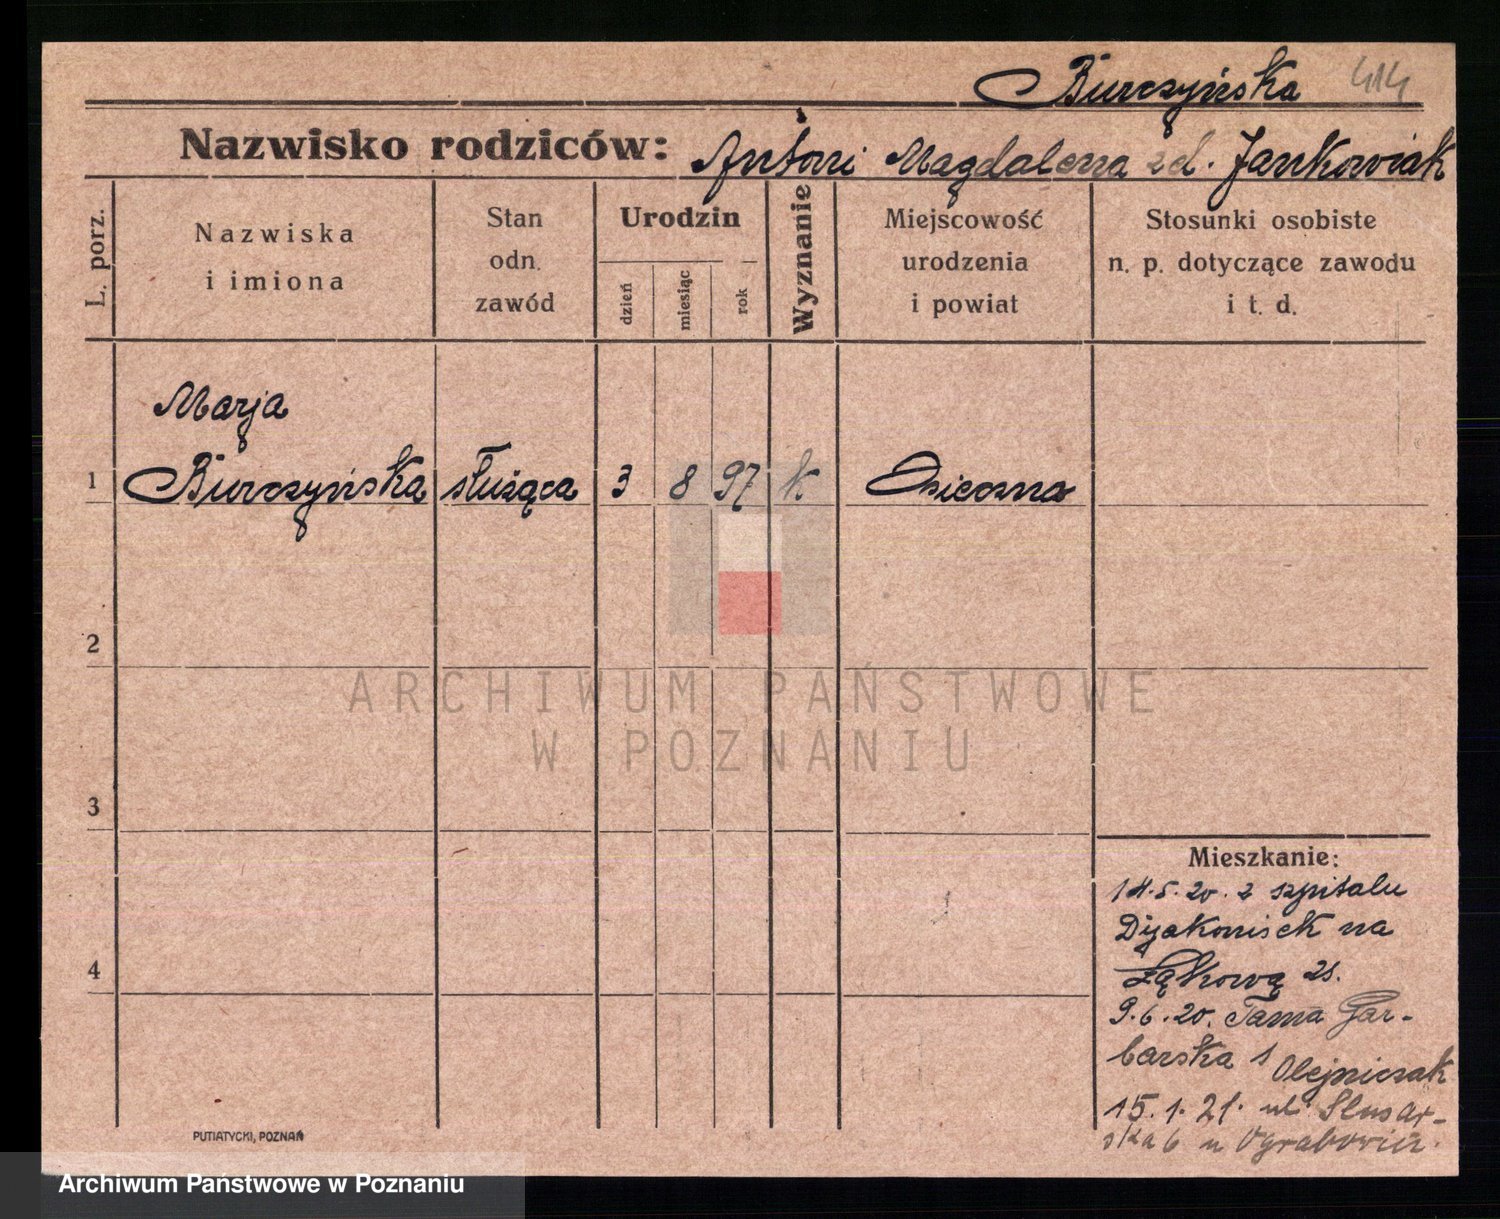 Burczyńska 414
Nazwisko rodziców: Antoni Magdalena zd. Jankowiak
L. porz.
Nazwiska
i imiona
Stan
odn.
zawód
Urodzin
dzień
miesiąc
rok
Wyznanie
Miejscowość
urodzenia
i powiat
Stosunki osobiste
n. p. dotyczące zawodu
i t. d.
Marja
1 Burczyńska służąca 3 8 97 k Osieczna
2
3
4
ARCHIWUM PAŃSTWOWE
W POZNANIU
Mieszkanie:
14.5.20. z szpitalu
Dyakonisek na
Łąkową 21.
9.6.20. Tama Gar-
barska 1 Olejniczak
15.1.21. ul. Slusar-
ska 6 u
PUTIATYCKI, POZNAŃ
Archiwum Państwowe w Poznaniu